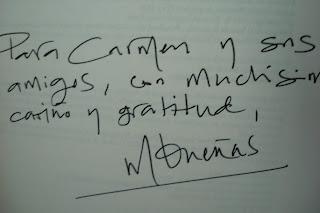 Para Carmen y sus
amigos, con muchísim
cariño y gratitud,
MDueñas